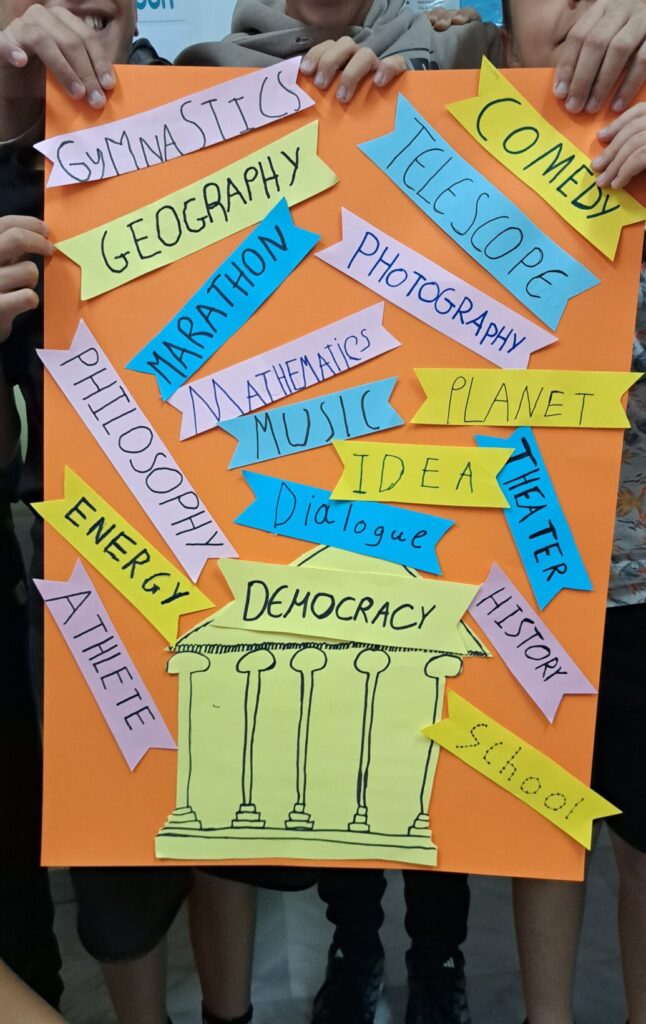 GYMNASTICS
COMEDY
TELESCOPE
GEOGRAPHY
MARATHON
PHOTOGRAPHY
MATHEMATICS
PLANET
MUSIC
PHILOSOPHY
IDEA
THEATER
Dialogue
ENERGY
DEMOCRACY
HISTORY
ATHLETE
School